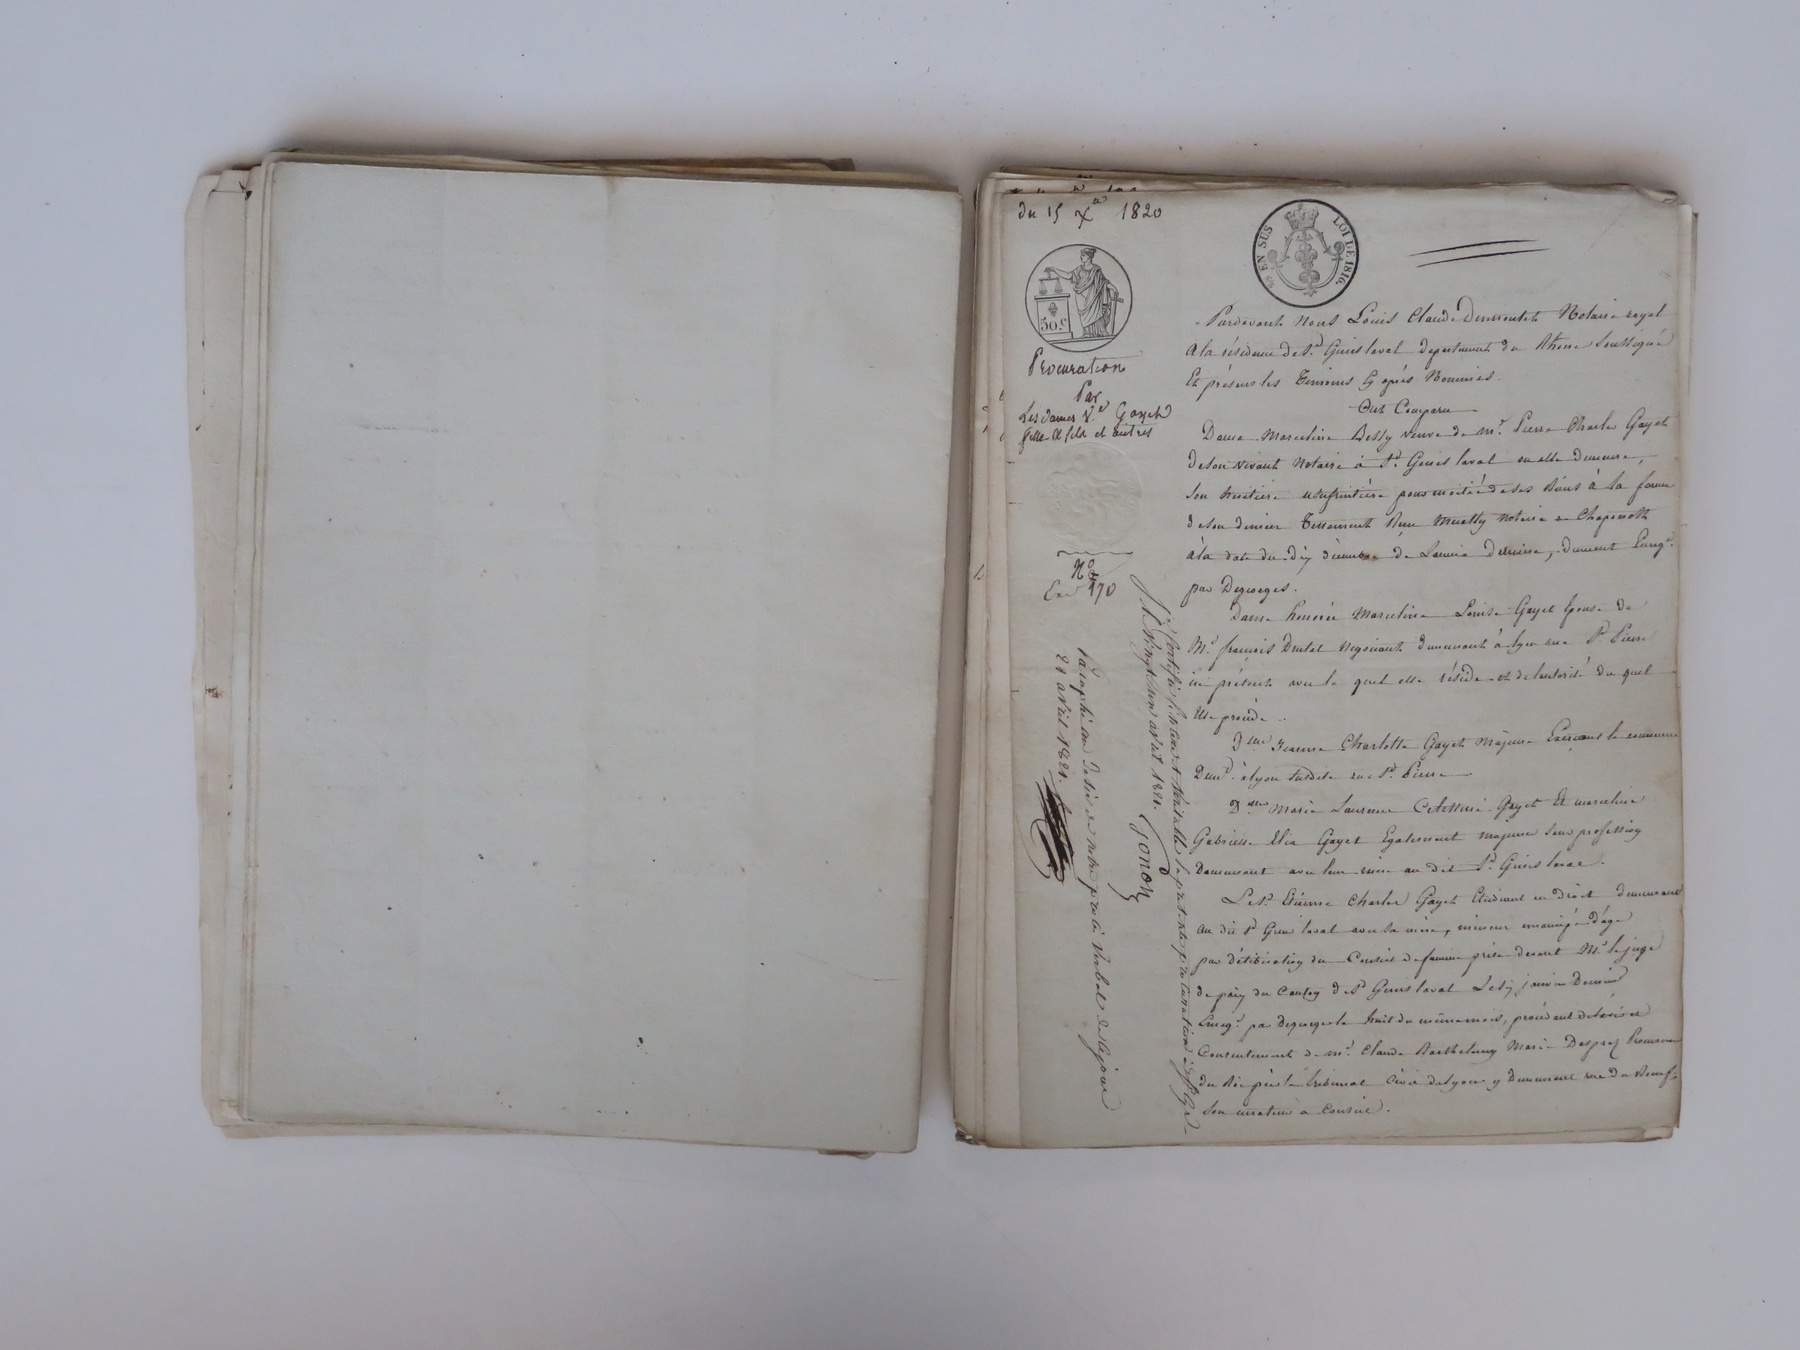 du 15 Xbre 1820
EN SUS LOI DE 1816.
50 c
Procuration
Par
Les dames Ve Gayet
fille & fils et autres
No
170
Pardevant Nous Louis Claude Notaire royal
A la résidence de St Genis laval département du Rhône Soussigné
Et présens les Témoins cy après Nommés.
Ont Comparu
Dame Marceline Bessy veuve de mr. Pierre Charles Gayet
de son vivant Notaire à St Genis laval ou elle demeure,
Son héritière usufruitière pour moitié de ses Biens à la forme
de son dernier Testament Reçu Notaire a Chaponost
à la date du dix de L'année dernière, dument Enregé.
par Degeorges.
Dame Marceline Louise Gayet Epouse de
Mr. françois Drulet Negociant demeurant à lyon rue St Pierre
ici présent avec le quel elle réside et de l'autorité du quel
Elle procède.
Dlle Jeanne Charlotte Gayet Majeure
Demt. à lyon susdite rue St Pierre
Dlles Marie Laurence Gayet Et marceline
Gabrielle Gayet Egalement majeures sans profession
Demeurant avec leur mère au dit St Genis laval.
Le Sr. Etienne Charles Gayet Etudiant en droit demeurant
au dit St Genis laval avec sa mère, mineur émancipé d'âge
par délibération du Conseil de famille prise devant Mr. le juge
de paix du Canton de St Genis laval Le janvier Dernier
Enregé. par Degeorges le huit du même mois, procédant de l'avis et
Consentement de mr. Claude Barthelemy Marie Desprez
du Roi près le tribunal Civil de Lyon y demeurant rue du Boeuf
Son curateur a Conseil.
je Certifie sincère et véritable la présente procuration
Vingt un avril 1821. Gonon
Paraphé au désir de notre procès Verbal de Ce jour
21 avril 1821.